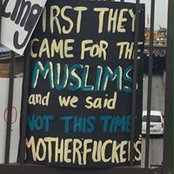 FIRST THEY
CAME FOR THE
MUSLIMS
and we said
NOT THIS TIME
MOTHERFUCKERS